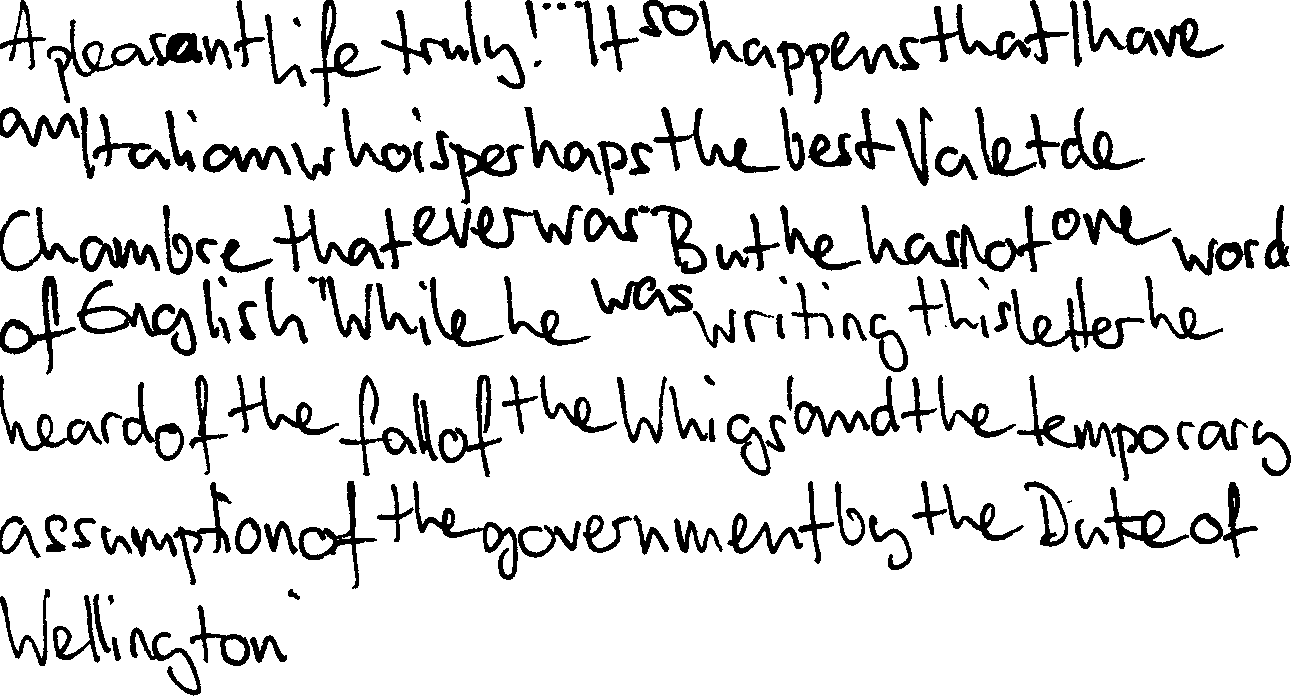 A pleasant life truly! "It so happens that I have
an Italian who is perhaps the best Valet de
Chambre that ever was. But he has not one word
of English" While he was writing this letter he
heard of the fall of the Whigs' and the temporary
assumption of the government by the Duke of
Wellington.